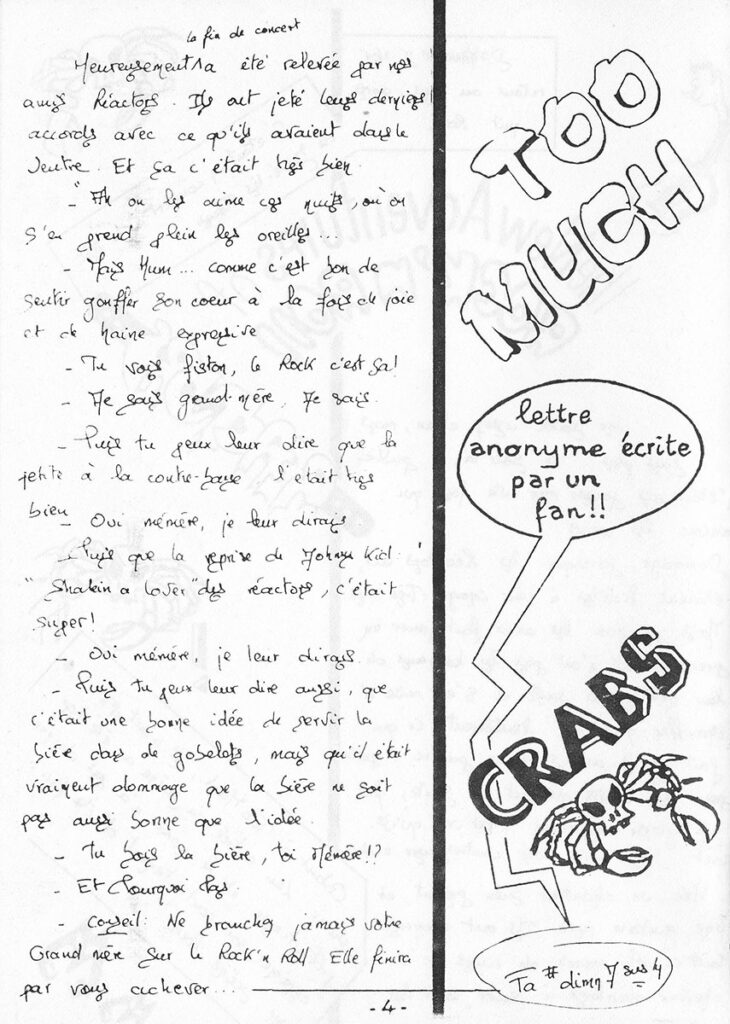 la fin de concert
Heureusement a été relevée par nos
amis Réactors. Ils ont jeté leurs derniers
accords avec ce qu'ils avaient dans le
ventre. Et ça c'était très bien.
" Ah on les aime ces nuits, où on
s'en prend plein les oreilles...
- Mais Hum... comme c'est bon de
sentir gonffler son coeur à la fois de joie
et de haine expressive
- Tu vois fiston, le Rock c'est ça!
- Je sais grand-mère, Je sais.
- Puis tu peux leur dire que la
petite à la contre-basse, l'était très
bien
- Oui mémère, je leur dirais.
- Puis que la reprise de Johnny Kid :
"Shakin a lover" des réactors, c'était
super!
- Oui mémère, je leur dirais.
- Puis tu peux leur dire aussi, que
c'était une bonne idée de servir la
bière dans de gobelets, mais qu'il était
vraiment dommage que la bière ne soit
pas aussi bonne que l'idée.
- Tu bois la bière, toi Mémère!?
- Et Pourquoi Pas.
- Conseil: Ne branchez jamais votre
Grand mère sur le Rock'n Roll. Elle finira
par vous achever...
- 4 -
TOO
MUCH
lettre
anonyme écrite
par un
fan!!
CRABS
Fa # dimn 7 sus 4